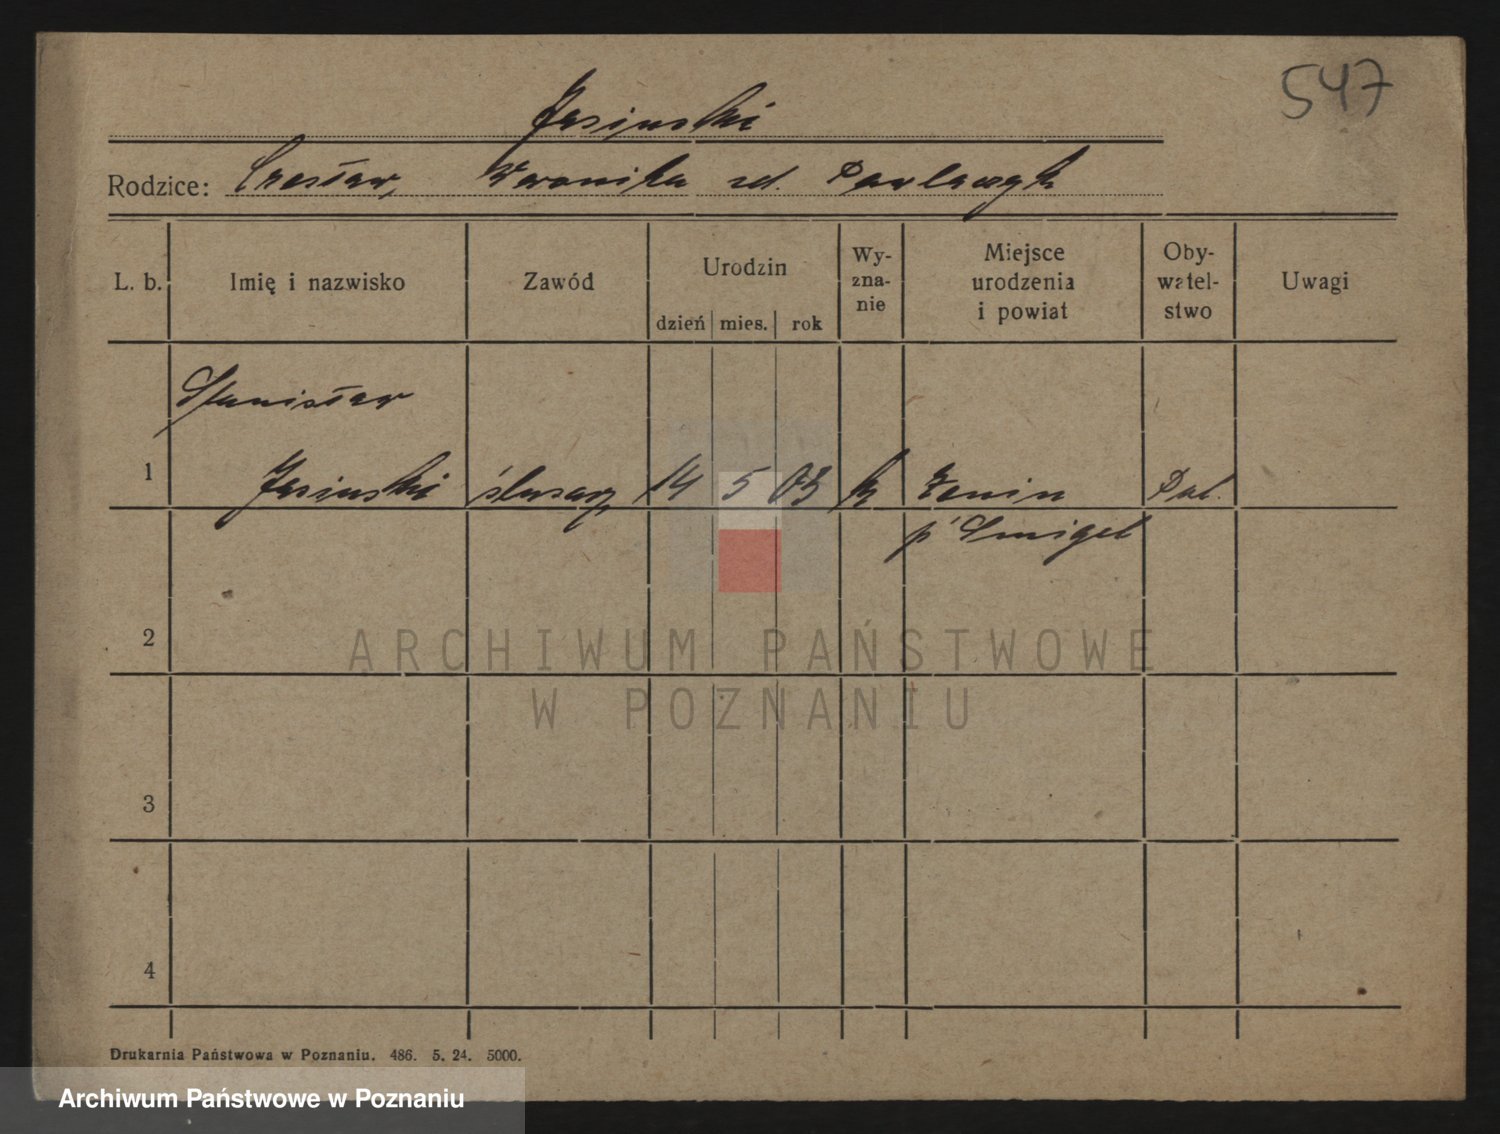 547
Jasiński
Rodzice: Czesław, Weronika zd. Pawlaczyk
L. b. Imię i nazwisko Zawód Urodzin dzień mies. rok Wyznanie Miejsce urodzenia i powiat Obywatelstwo Uwagi
Stanisław
1 Jasiński ślusarz 14 5 03 k Pol.
p Śmigel
2
3
4
Drukarnia Państwowa w Poznaniu. 486. 5. 24. 5000.
ARCHIWUM PAŃSTWOWE
W POZNANIU
Archiwum Państwowe w Poznaniu